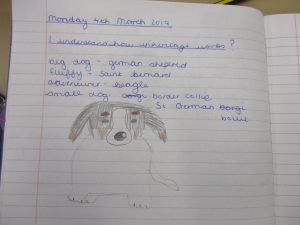 Monday 4th March 2019
I understand how inheritage works?
big dog - german sheperd
fluffy - saint bernard
adventurer - beagle
small dog - corgi border collie
St German corgi
bollie